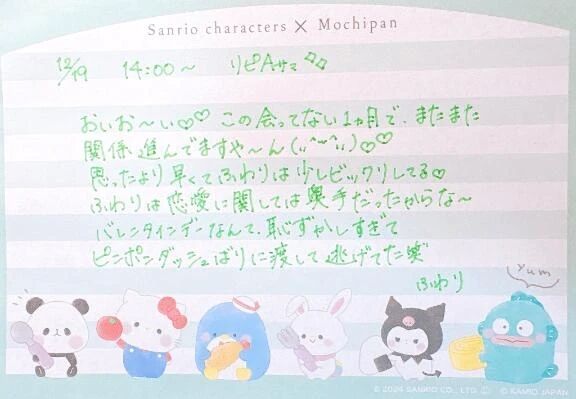 Sanrio characters × Mochipan
12/19 14:00〜 リピAサマ
おいお〜い♡♡ この会ってない1ヵ月で、またまた
関係進んでますや〜ん(,,^-^,,)♡♡
思ったより早くてふわりは少しビックリしてる♡
ふわりは恋愛に関しては奥手だったからな〜
バレンタインデーなんて、恥ずかしすぎて
ピンポンダッシュばりに渡して逃げてた笑
ふわり
yum
© 2024 SANRIO CO., LTD. © KAMIO JAPAN